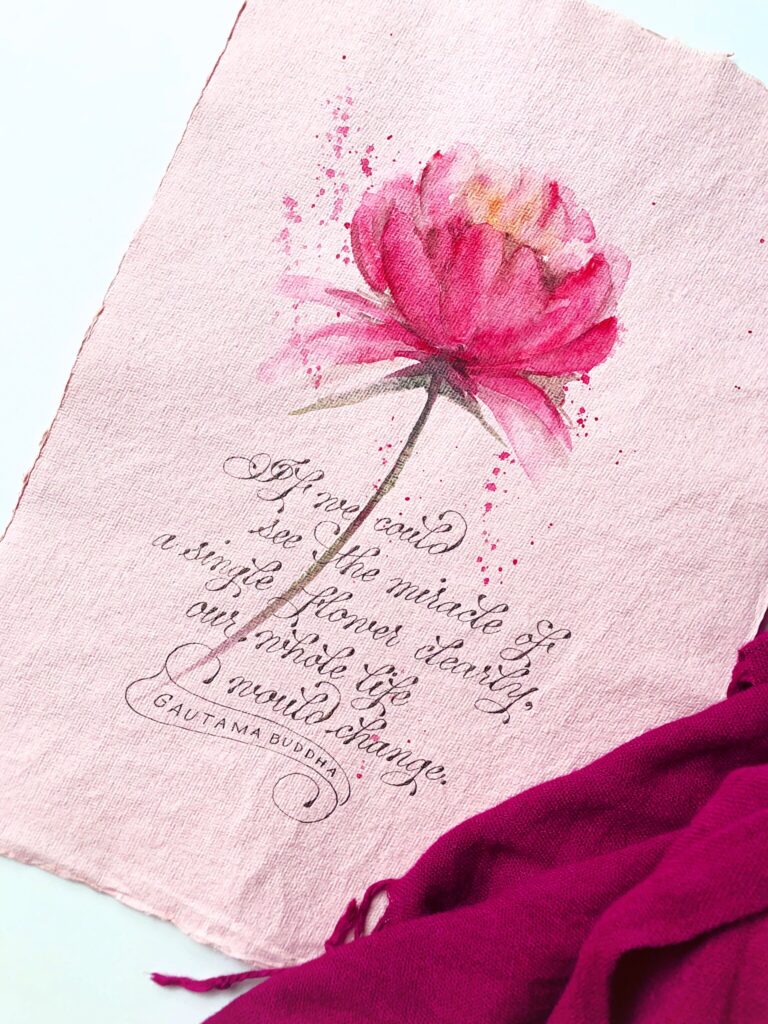 If we could
see the miracle of
a single flower clearly,
our whole life
would change.
GAUTAMA BUDDHA